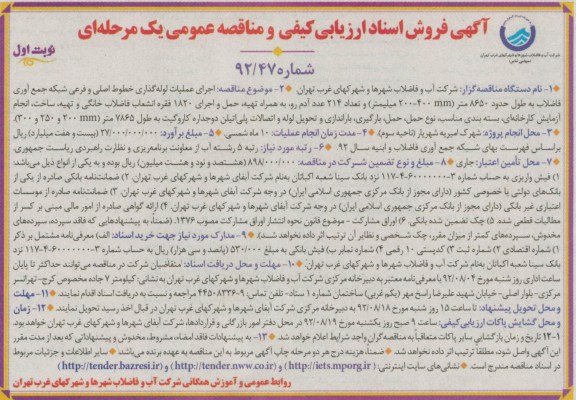 آگهی فروش اسناد ارزیابی کیفی و مناقصه عمومی یک مرحله‌ای
نوبت اول
شماره ۹۲/۴۷
۱- نام دستگاه مناقصه‌گزار: شرکت آب و فاضلاب شهرها و شهرکهای غرب تهران ۲- موضوع مناقصه: اجرای عملیات لوله‌گذاری خطوط اصلی و فرعی شبکه جمع آوری
فاضلاب به طول حدود ۸۶۵۰ متر (۴۰۰-۲۰۰ میلیمتر) و تعداد ۲۱۴ عدد آدم رو، به همراه تهیه، حمل و اجرای ۱۸۲۰ فقره انشعاب فاضلاب خانگی و تهیه، ساخت، انجام
آزمایش کارخانه‌ای، بسته بندی مناسب، نوع حمل، حمل، بارگیری، باراندازی و تحویل لوله و اتصالات پلی‌اتیلن دوجداره کاروگیت به طول ۷۸۶۵ متر (۲۰۰ mm و ۲۵۰ و ۳۰۰).
۳- محل انجام پروژه: شهرک امیریه شهریار (ناحیه سوم) ۴- مدت زمان انجام عملیات: ۱۰ ماه شمسی. ۵- مبلغ برآورد: ۲۷/۰۰۰/۰۰۰/۰۰۰ (بیست و هفت میلیارد) ریال
براساس فهرست بهای شبکه جمع آوری فاضلاب و ابنیه سال ۹۲. ۶- رتبه مورد نیاز: رتبه ۵ رشته آب از معاونت برنامه‌ریزی و نظارت راهبردی ریاست جمهوری.
۷- محل تأمین اعتبار: جاری ۸- مبلغ و نوع تضمین شرکت در مناقصه: ۸۹۸/۰۰۰/۰۰۰ (هشتصد و نود و هشت میلیون) ریال بوده و به یکی از انواع ذیل می‌باشد:
۱) فیش واریزی به حساب شماره ۳-۶۰۰۰۰۰۰-۴-۱۱۷ نزد بانک سینا شعبه اکباتان به‌نام شرکت آب و فاضلاب شهرها و شهرکهای غرب تهران. ۲) ضمانت‌نامه بانکی صادره از یکی از
بانک‌های دولتی یا خصوصی کشور (دارای مجوز از بانک مرکزی جمهوری اسلامی ایران) در وجه شرکت آبفای شهرها و شهرکهای غرب تهران. ۳) ضمانت‌نامه صادره از موسسات
اعتباری غیر بانکی (دارای مجوز از بانک مرکزی جمهوری اسلامی ایران) در وجه شرکت آبفای شهرها و شهرکهای غرب تهران. ۴) ارائه گواهی صادره از امور مالی مبنی بر کسر از
مطالبات قطعی شده. ۵) چک تضمین شده بانکی ۶) اوراق مشارکت - موضوع قانون نحوه انتشار اوراق مشارکت مصوب ۱۳۷۶. (ضمناً، به پیشنهادهایی که فاقد سپرده، سپرده‌های
مخدوش، سپرده‌های کمتر از میزان مقرر، چک شخصی و نظایر آن ترتیب اثر داده نخواهد شد). ۹- مدارک مورد نیاز جهت خرید اسناد: الف) معرفی‌نامه مشتمل بر ذکر
۱) شماره اقتصادی ۲) شماره ثبت ۳) کدپستی ۱۰ رقمی ۴) شماره نمابر ب) فیش بانکی به مبلغ ۵۳۰/۰۰۰ (پانصد و سی هزار) ریال به حساب شماره ۳-۶۰۰۰۰۰۰-۴-۱۱۷ نزد
بانک سینا شعبه اکباتان به‌نام شرکت آب و فاضلاب شهرها و شهرکهای غرب تهران. ۱۰- مهلت و محل دریافت اسناد: متقاضیان شرکت در مناقصه می‌توانند حداکثر تا پایان
ساعت اداری روز شنبه مورخ ۹۲/۰۸/۰۴ با معرفی‌نامه معتبر به دبیرخانه مرکزی شرکت آب و فاضلاب شهرها و شهرکهای غرب تهران به نشانی: کیلومتر ۷ جاده مخصوص کرج- تهرانسر
مرکزی- بلوار اصلی- خیابان شهید علیرضا راسخ مهر (یکم غربی) ساختمان شماره ۱ ستاد- تلفن تماس ۹-۴۴۵۰۸۳۳۶ مراجعه و نسبت به دریافت اسناد اقدام نمایند. ۱۱- مهلت
و محل تحویل پیشنهاد: تا ساعت ۱۵ روز شنبه مورخ ۹۲/۰۸/۱۸ به دبیرخانه مرکزی شرکت آبفای شهرها و شهرکهای غرب تهران در قبال اخذ رسید تحویل نمایند. ۱۲- زمان
و محل گشایش پاکات ارزیابی کیفی: ساعت ۹ صبح روز یکشنبه مورخ ۹۲/۰۸/۱۹ در محل دفتر امور بازرگانی و قراردادها، شرکت آبفای شهرها و شهرکهای غرب تهران خواهد بود.
۱-۱۲) تاریخ و زمان بازگشایی سایر پاکات متعاقباً به مناقصه‌گران واجد شرایط اعلام خواهد شد. ۱۳- به پیشنهادات فاقد امضاء، مشروط، مخدوش و پیشنهاداتی که بعد از مدت مقرر
این آگهی واصل شود، مطلقاً ترتیب اثر داده نخواهد شد. ضمناً، هزینه درج هر دو مرحله چاپ آگهی مربوط به این مناقصه به عهده برنده می‌باشد. سایر اطلاعات و جزئیات مربوط
در اسناد مناقصه مندرج است. نشانی‌های سایت اینترنتی: (http://iets.mporg.ir) و (http://tender.nww.co.ir) و (http://tender.bazresi.ir)
روابط عمومی و آموزش همگانی شرکت آب و فاضلاب شهرها و شهرکهای غرب تهران